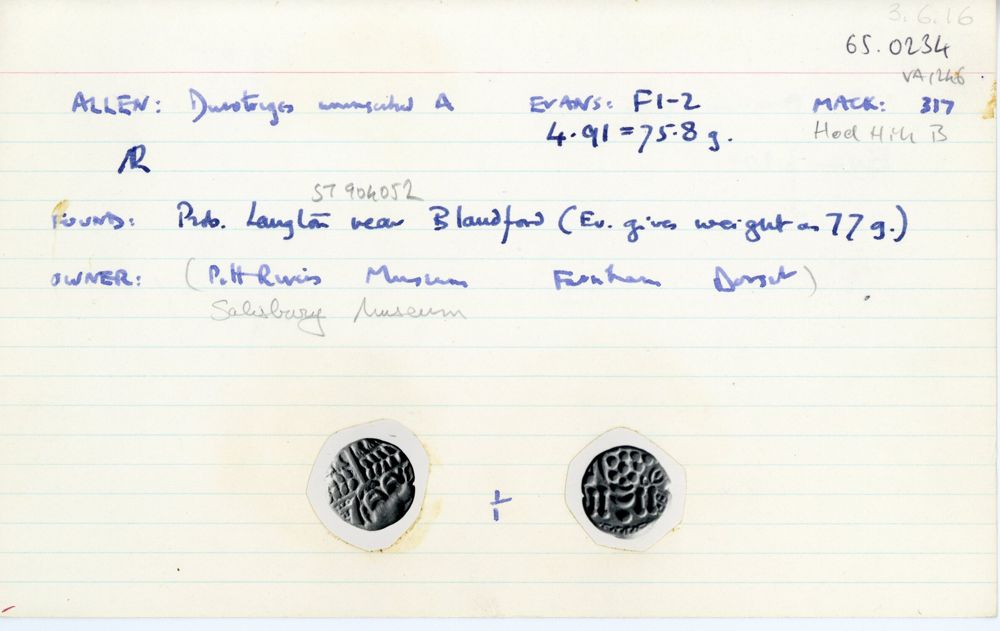 3.6.16
65.0234
VA1246
ALLEN: Durotriges uninscribed A EVANS: F1-2 MACK: 317
4.91 = 75.8 g. Hod Hill B
AR
ST 904052
FOUND: Prob. Langton near Blandford (Ev. gives weight as 77 g.)
OWNER: (Pitt Rivers Museum Farnham Dorset)
Salisbury Museum
1/1